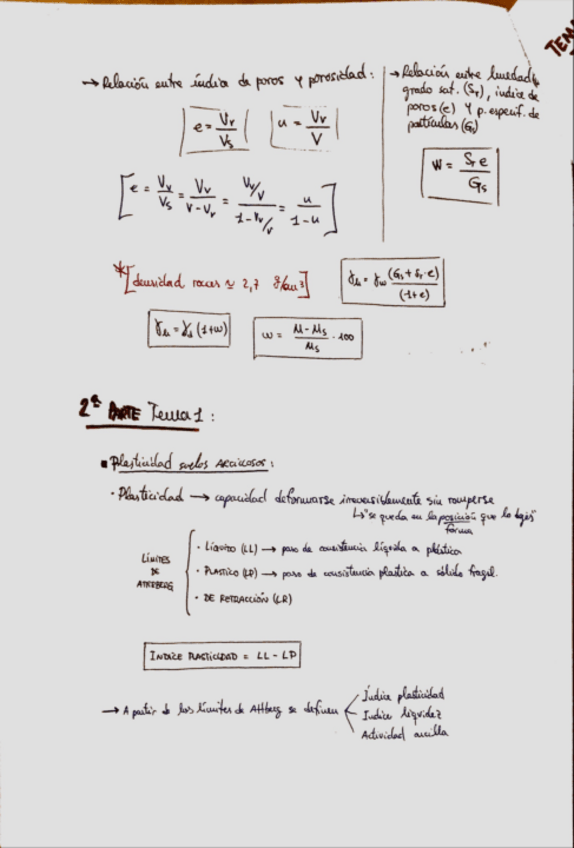 TEMA
→ Relación entre índice de poros y porosidad:
e = Vv/Vs    n = Vv/V
[e = Vv/Vs = Vv/(V-Vv) = (Vv/V)/(1-Vv/V) = n/(1-n)]
→ Relación entre humedad,
grado sat. (Sr), índice de
poros (e) y p. específ. de
partículas (Gs)
W = Sr e/Gs
*[densidad rocas ≃ 2,7 g/cm³]
γn = γw (Gs + Sr·e)/(1+e)
γn = γd (1+w)
w = M-Ms/Ms · 100
2ª PARTE Tema 1:
▪ Plasticidad suelos ARCILLOSOS:
· Plasticidad → capacidad deformarse irreversiblemente sin romperse
↳ "se queda en la posición que lo dejes"
forma
LÍMITES
DE
ATTERBERG
· LÍQUIDO (LL) → paso de consistencia líquida a plástica
· PLASTICO (LP) → paso de consistencia plastica a sólido fragil.
· DE RETRACCIÓN (LR)
INDICE PLASTICIDAD = LL - LP
→ A partir de los límites de Attberg se definen
Índice plasticidad
Indice liquidez
Actividad arcilla